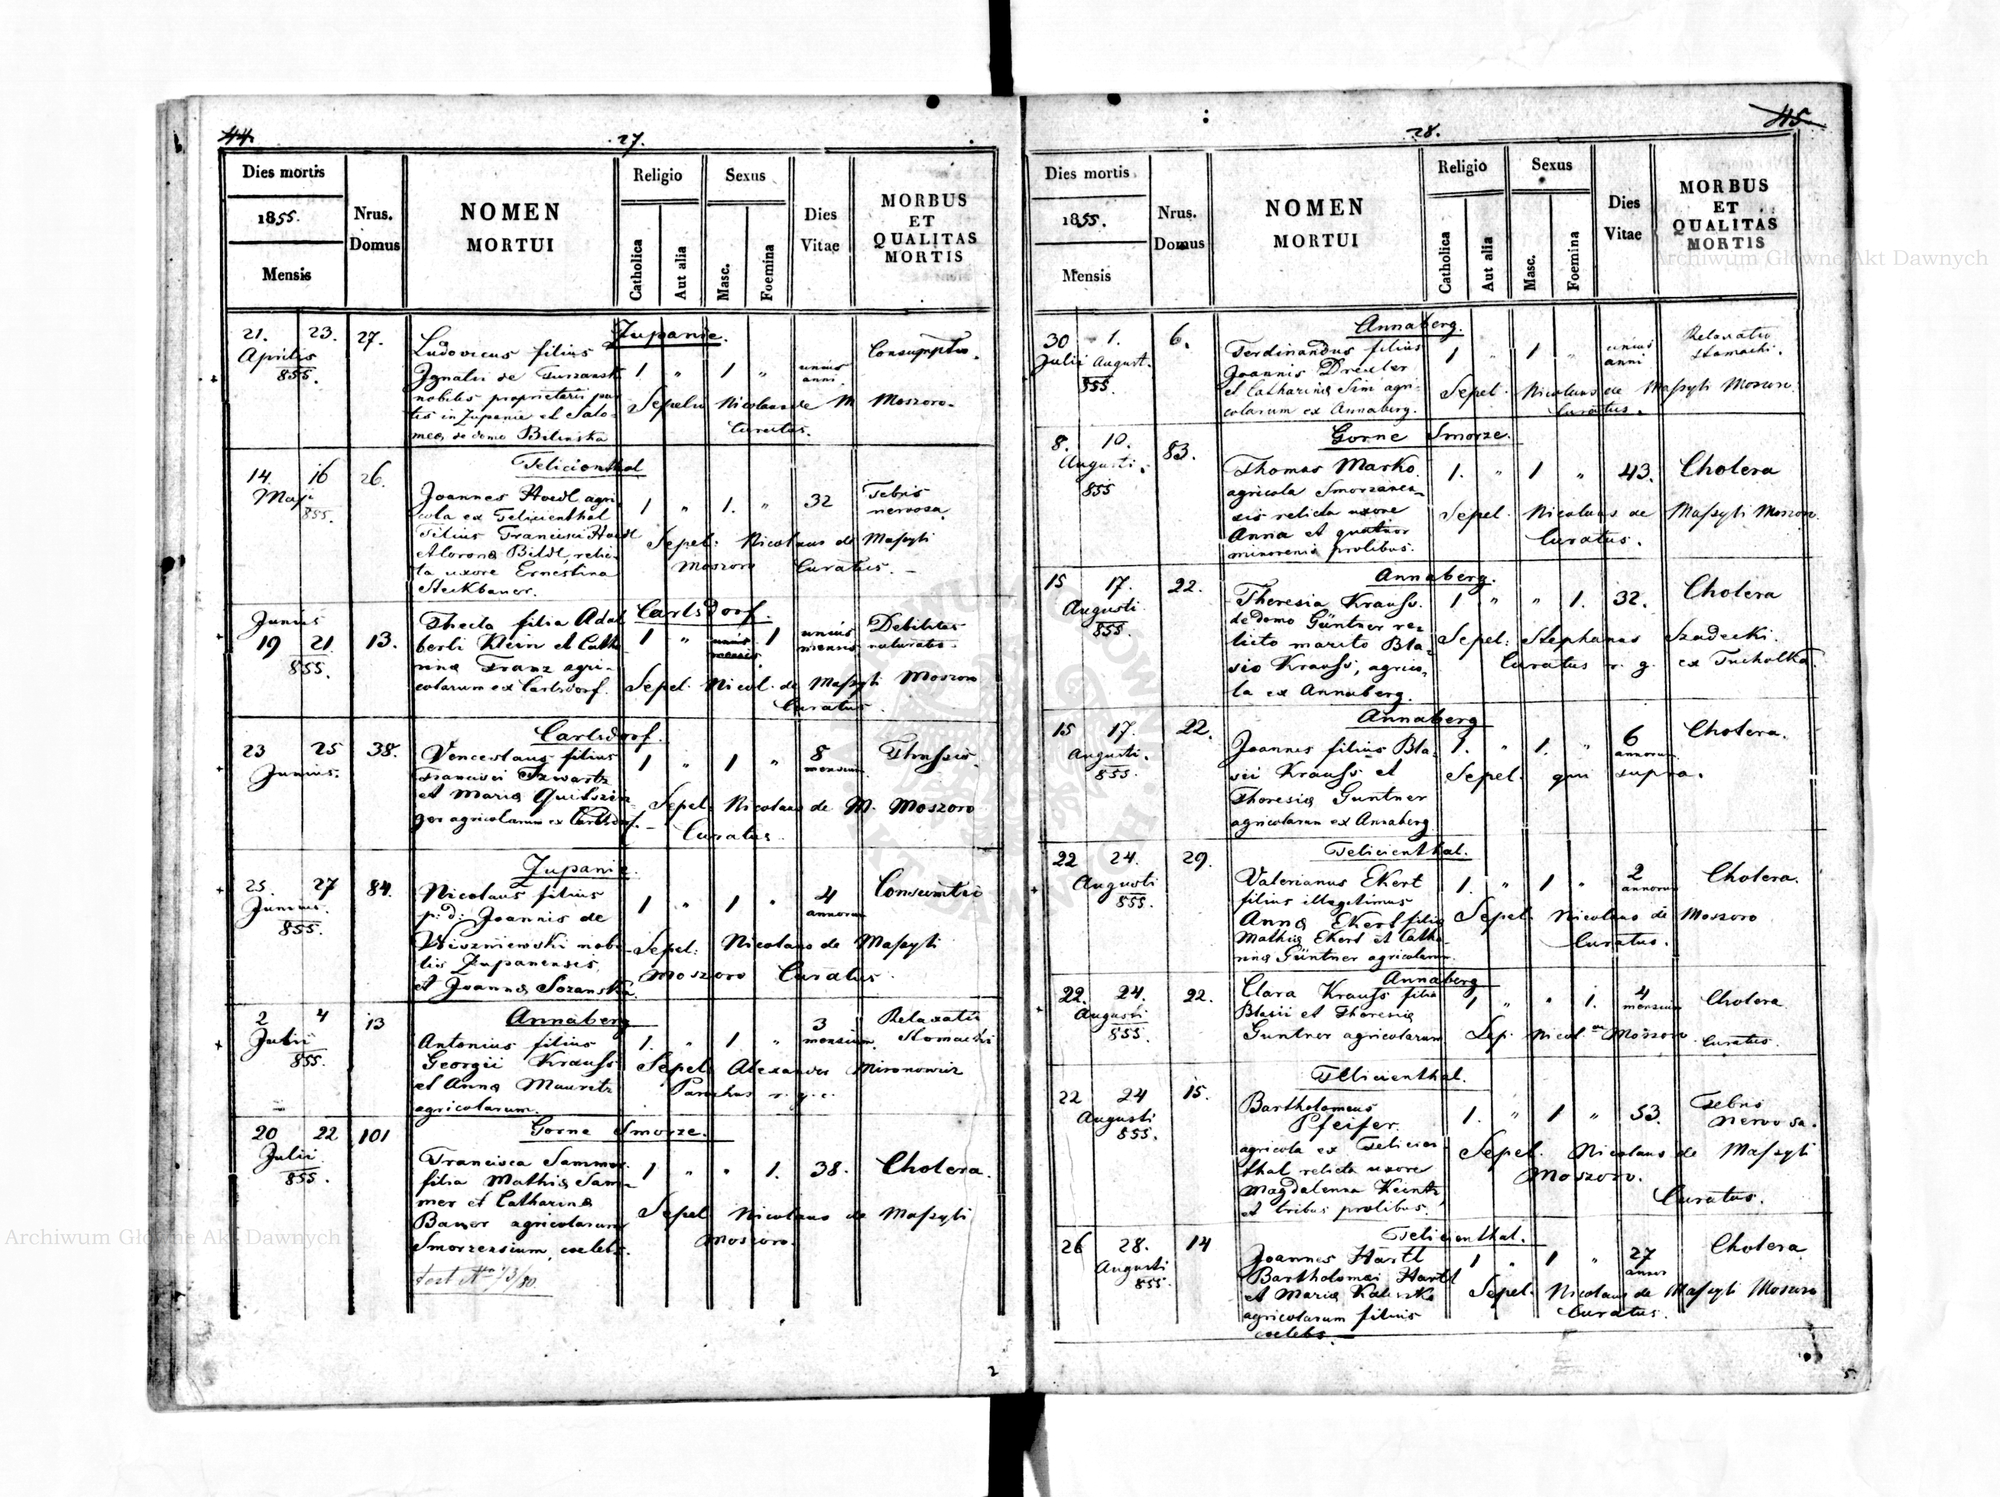 44
27.
Dies mortis
1855.
Mensis
Nrus.
Domus
NOMEN
MORTUI
Religio
Catholica
Aut alia
Sexus
Masc.
Foemina
Dies
Vitae
MORBUS
ET
QUALITAS
MORTIS
Zupanie.
21. 23. 27.
Aprilis
855.
Ludovicus filius
Ignatii de Turzansk
nobilis proprietarii par
tis in Zupanie et Salo-
meæ de domo Bilinska
1 " 1 " unius
anni.
Consumptio.
Sepeliv Nicolaus de M Moszoro
Curatus.
Felicienthal
14. 16 26.
Maji
855.
Joannes Hoedl agri-
cola ex Felicienthal
Filius Francisci Hoedl
relic-
ta uxore Ernestina
Steckbauer.
1 " 1. " 32
Febris
nervosa
Sepel: Nicolaus de Maszyti
Moszoro Curatus.
Carlsdorf.
Junius
19 21. 13.
855.
Thecla filia Adal
berti Klein et Catha
rinæ Franz agri-
colarum ex Carlsdorf.
1 " 1 unius
mensis
Debilitas
naturalis.
Sepel. Nicol. de Maszyti Moszoro
Curatus.
Carlsdorf.
23 25 38.
Junius.
Venceslaus filius
Francisci Szwartz
et Mariæ
ger agricolarum ex Carlsdorf.
1 " 1 " 8
mensium
Sepel. Nicolaus de M. Moszoro
Curatus
Zupanie.
25. 27 84.
Junius.
855.
Nicolaus filius
p: d: Joannis de
Wiszniewski nobi-
lis Zupanensis
et Joannæ Sozanska
1 " 1 " 4
annorum
Consumtio
Sepel: Nicolaus de Maszyti
Moszoro Curatus
Annaberg
2 4 13
Julii
855.
Antonius filius
Georgii Krauss
et Annæ Mauritz
agricolarum.
1. " 1 " 3
mensium.
Relaxatio
Stomachi
Sepel. Alexander Mironowicz
Parochus r. g. c.
Gorne Smorze.
20 22 101
Julii
855.
Francisca Sammer
filia Mathiæ Sam-
mer et Catharinæ
Bauer agricolarum
Smorzensium, coelebs.
1 " " 1. 38.
Cholera.
Sepel Nicolaus de Maszyti
Moszoro.
2
45
28.
Dies mortis
1855.
Mensis
Nrus.
Domus
NOMEN
MORTUI
Religio
Catholica
Aut alia
Sexus
Masc.
Foemina
Dies
Vitae
MORBUS
ET
QUALITAS
MORTIS
Annaberg.
30 1. 6.
Julii August.
855.
Ferdinandus filius
Joannis Drexler
et Catharinæ Sini agri-
colarum ex Annaberg.
1 " 1 " unius
anni
Relaxatio
stomachi.
Sepel. Nicolaus de Maszyti Moszoro
Curatus.
Gorne Smorze.
8. 10. 83.
Augusti.
855
Thomas Marko
agricola Smorzanen-
sis relicta uxore
Anna et quatuor
minorenis prolibus.
1. " 1 " 43.
Cholera
Sepel. Nicolaus de Maszyti Moszoro
Curatus.
Annaberg.
15 17. 22.
Augusti
855.
Theresia Krauss.
de domo Güntner re-
licto marito Bla-
sio Krauss, agrico-
la ex Annaberg.
1 " " 1. 32.
Cholera
Sepel: Stephanus Szadecki.
Curatus r. g. ex Tucholka.
Annaberg
15 17. 22.
Augusti.
855.
Joannes filius Bla-
sii Krauss et
Theresiæ Guntner
agricolarum ex Annaberg
1. " 1. " 6
annorum
Cholera.
Sepel. qui supra.
Felicienthal.
22 24. 29.
Augusti
855.
Valerianus Ekert
filius illegitimus
Annæ Ekert filiæ
Mathiæ Ekert et Catha-
rinæ Güntner agricolarum
1. " 1 " 2
annorum
Cholera.
Sepel. Nicolaus de Moszoro
Curatus.
Annaberg
22. 24. 22.
Augusti
855.
Clara Krauss filia
Blasii et Theresiæ
Guntner agricolarum
1 " " 1. 4
mensium
Cholera
Sep. Nicol. Moszoro Curatus.
Felicienthal.
22 24 15.
Augusti
855.
Bartholomeus
Pfeifer.
agricola ex Felicien
thal relicta uxore
Magdalenna Keintz
et tribus prolibus.
1. " 1 " 53.
Febris
nervosa.
Sepel. Nicolaus de Maszyti
Moszoro.
Curatus.
Felicienthal.
26 28. 14
Augusti
855.
Joannes Hartl
Bartholomei Hartl
et Mariæ
agricolarum filius
coelebs.
1 " 1 " 27
annor
Cholera
Sepel. Nicolaus de Maszyti Moszoro
Curatus.
5
Archiwum Główne Akt Dawnych
Archiwum Główne Akt Dawnych